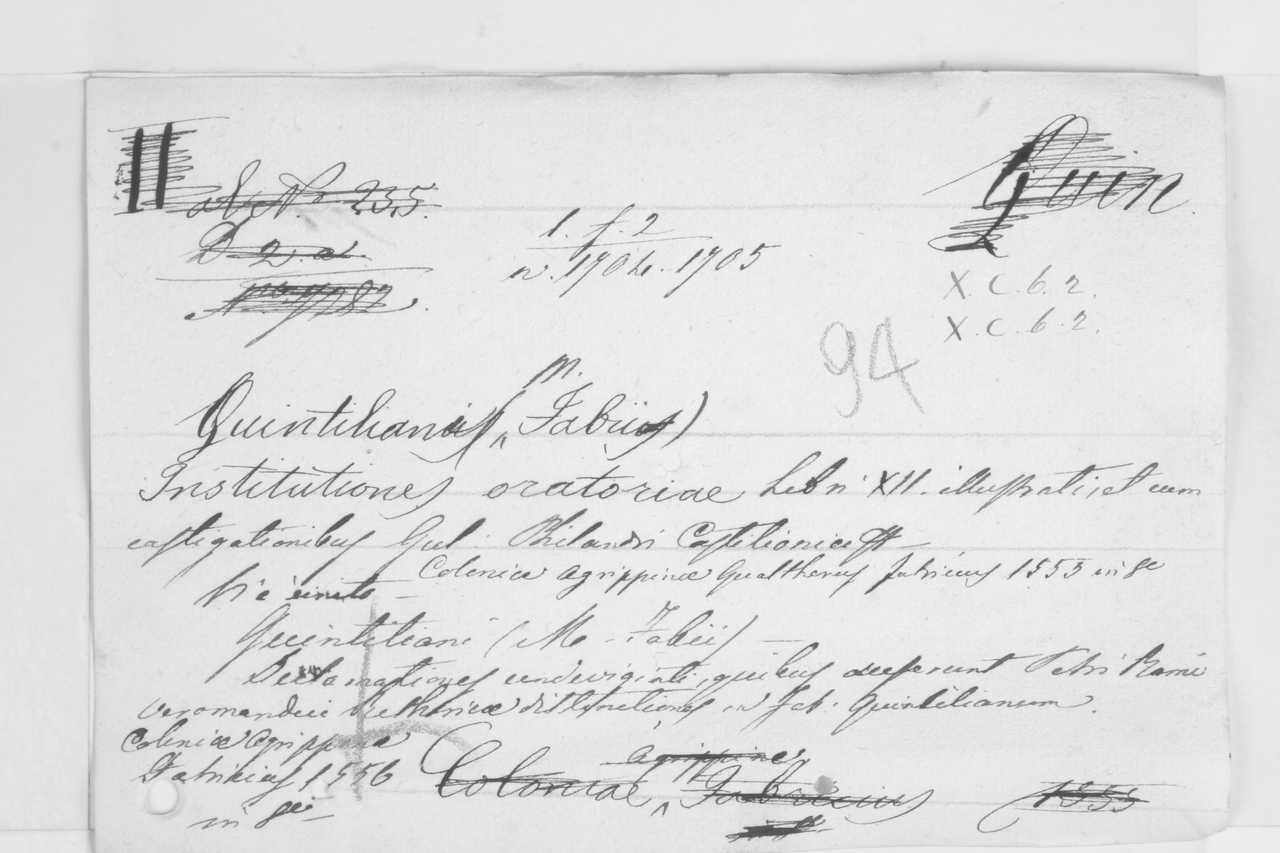 II
ab N.º 235.
D 2 a
Quin
1. f. 2
n. 1704. 1705
X. C. 6. 2.
X. C. 6. 2.
94
m.
Quintiliani (Fabii)
Institutiones oratoriae Libri XII. illustrati, et cum
castigationibus Gul. Philandri Castilionii
Coloniae Agrippinae Gualtherus Fabricius 1553 in 8º
Vi è unito
Quintiliani (M. Fabii) —
Declamationes undeviginti, quibus accesserunt Petri Rami
veromandui Rethoricae distinctiones in Fab. Quintilianum.
Coloniae Agrippinae
Fabricius 1556
in 8º
Agrippinae
Coloniae, Fabricius 1555